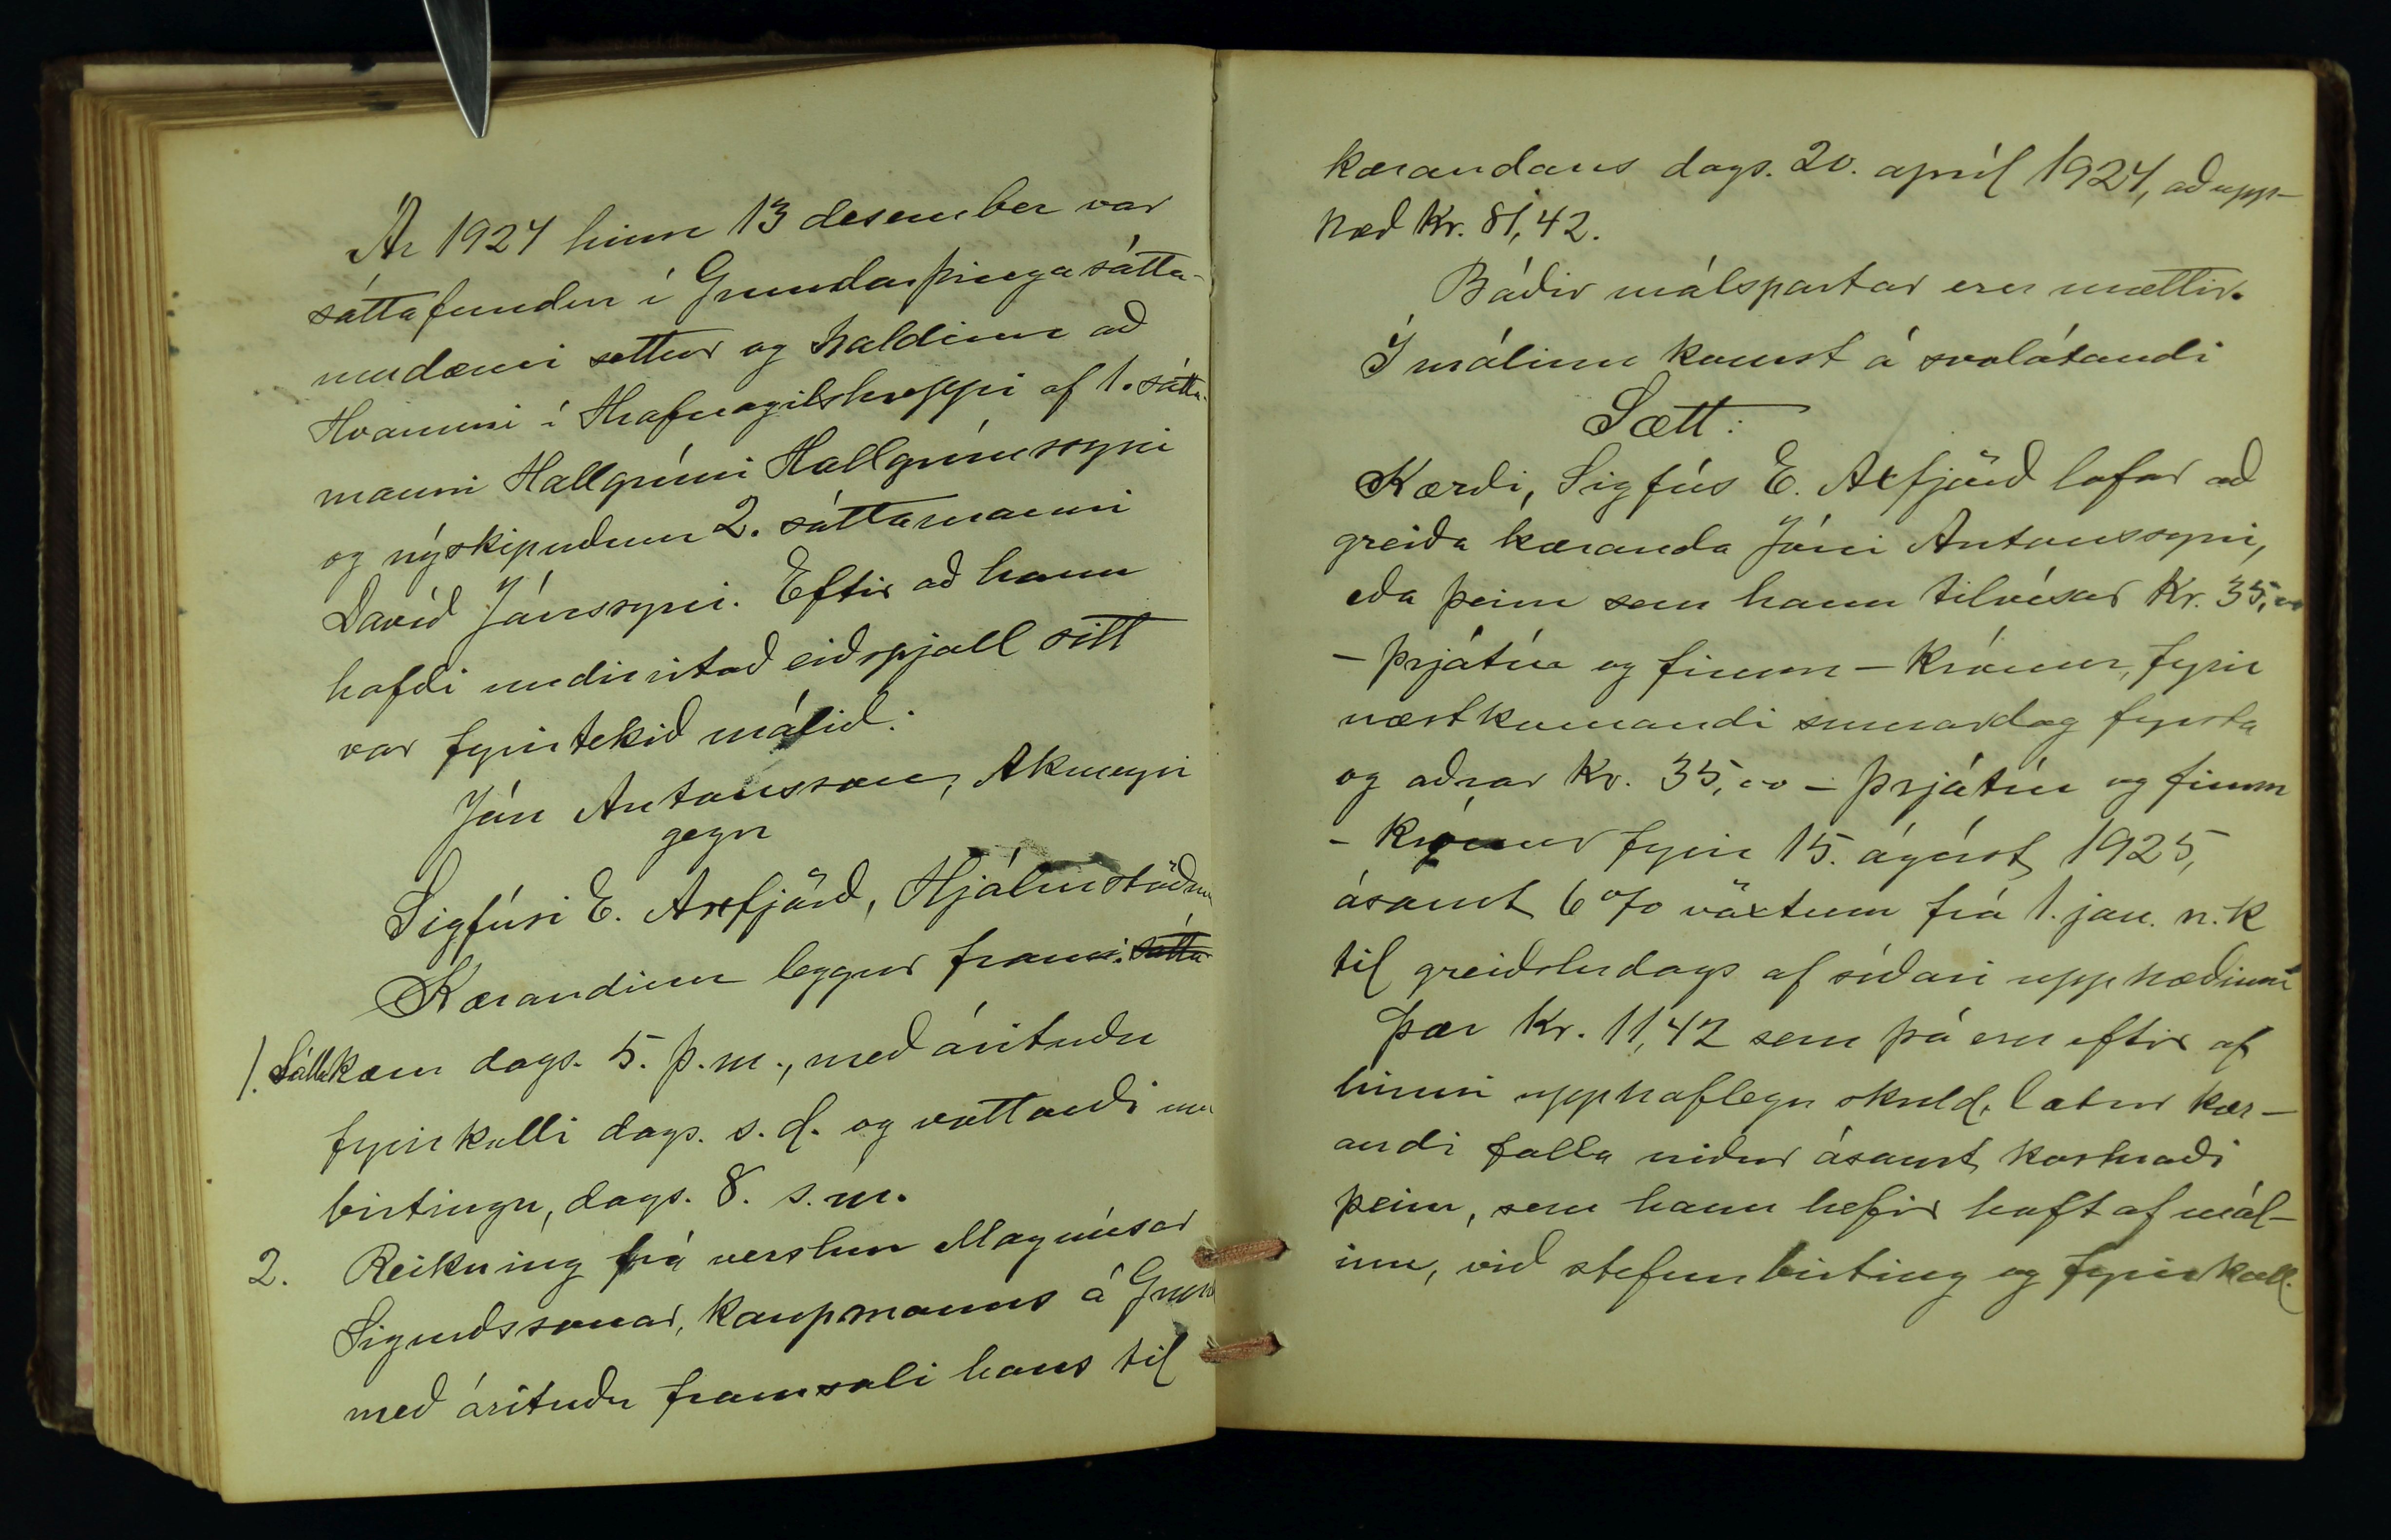 Ár 1924 hinn 13 desember var
sáttafundur í Grundarþinga sátta-
umdæmi settur og haldinn að
Hvammi í Hrafnagilshreppi af 1. sátta-
manni Hallgrími Hallgrímssyni
og nýskipuðum 2. sáttamanni
Davíð Jónssyni. Eftir að hann
hafði undirritað eiðspjall sitt
var fyrirtekið málið:
Jón Antonsson, Akureyri
gegn
Sigfúsi E. Axfjörð, Hjálmstöðum
Kærandinn leggur fram: sátta
1. Sáttakæru dags. 5. þ.m., með árituðu
fyrirkalli dags. s.d. og vottorði um
birtingu, dags. 8. s.m.
2. Reikning frá verslun Magnúsar
Sigurðssonar, kaupmanns á Grund
með árituðu framsali hans til
kærandans dags. 20. apríl 1924, að upp-
hæð Kr. 81,42.
Báðir málspartar eru mættir.
Í málinu komst á svolátandi
Sætt:
Kærði, Sigfús E. Axfjörð lofar að
greiða kæranda Jóni Antonssyni,
eða þeim sem hann tilvísar Kr. 35,00
- þrjátíu og fimm - krónur, fyrir
næstkomandi sumardag fyrsta
og aðrar Kr. 35,00 - þrjátíu og fimm
- krónur fyrir 15. ágúst 1925,
ásamt 6% vöxtum frá 1. jan. n.k
til greiðsludags af síðari upphæðinni
Þær Kr. 11,42 sem þá eru eftir af
hinni upphaflegu skuld, lætur kær-
andi falla niður ásamt kostnaði
þeim, sem hann hefir haft af mál-
inu, við stefnubirting og fyrirkall.